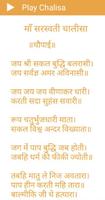 Play Chalisa
माँ सरस्वती चालीसा
॥चौपाई॥
जय श्री सकल बुद्धि बलरासी।
जय सर्वज्ञ अमर अविनासी॥
जय जय जय वीणाकर धारी।
करती सदा सुहंस सवारी॥
रूप चतुर्भुजधारी माता।
सकल विश्व अन्दर विख्याता॥
जग में पाप बुद्धि जब होती।
जबहि धर्म की फीकी ज्योती॥
तबहि मातु ले निज अवतारा।
पाप हीन करती महि तारा॥
बाल्मीकि जी थे हत्यारा।